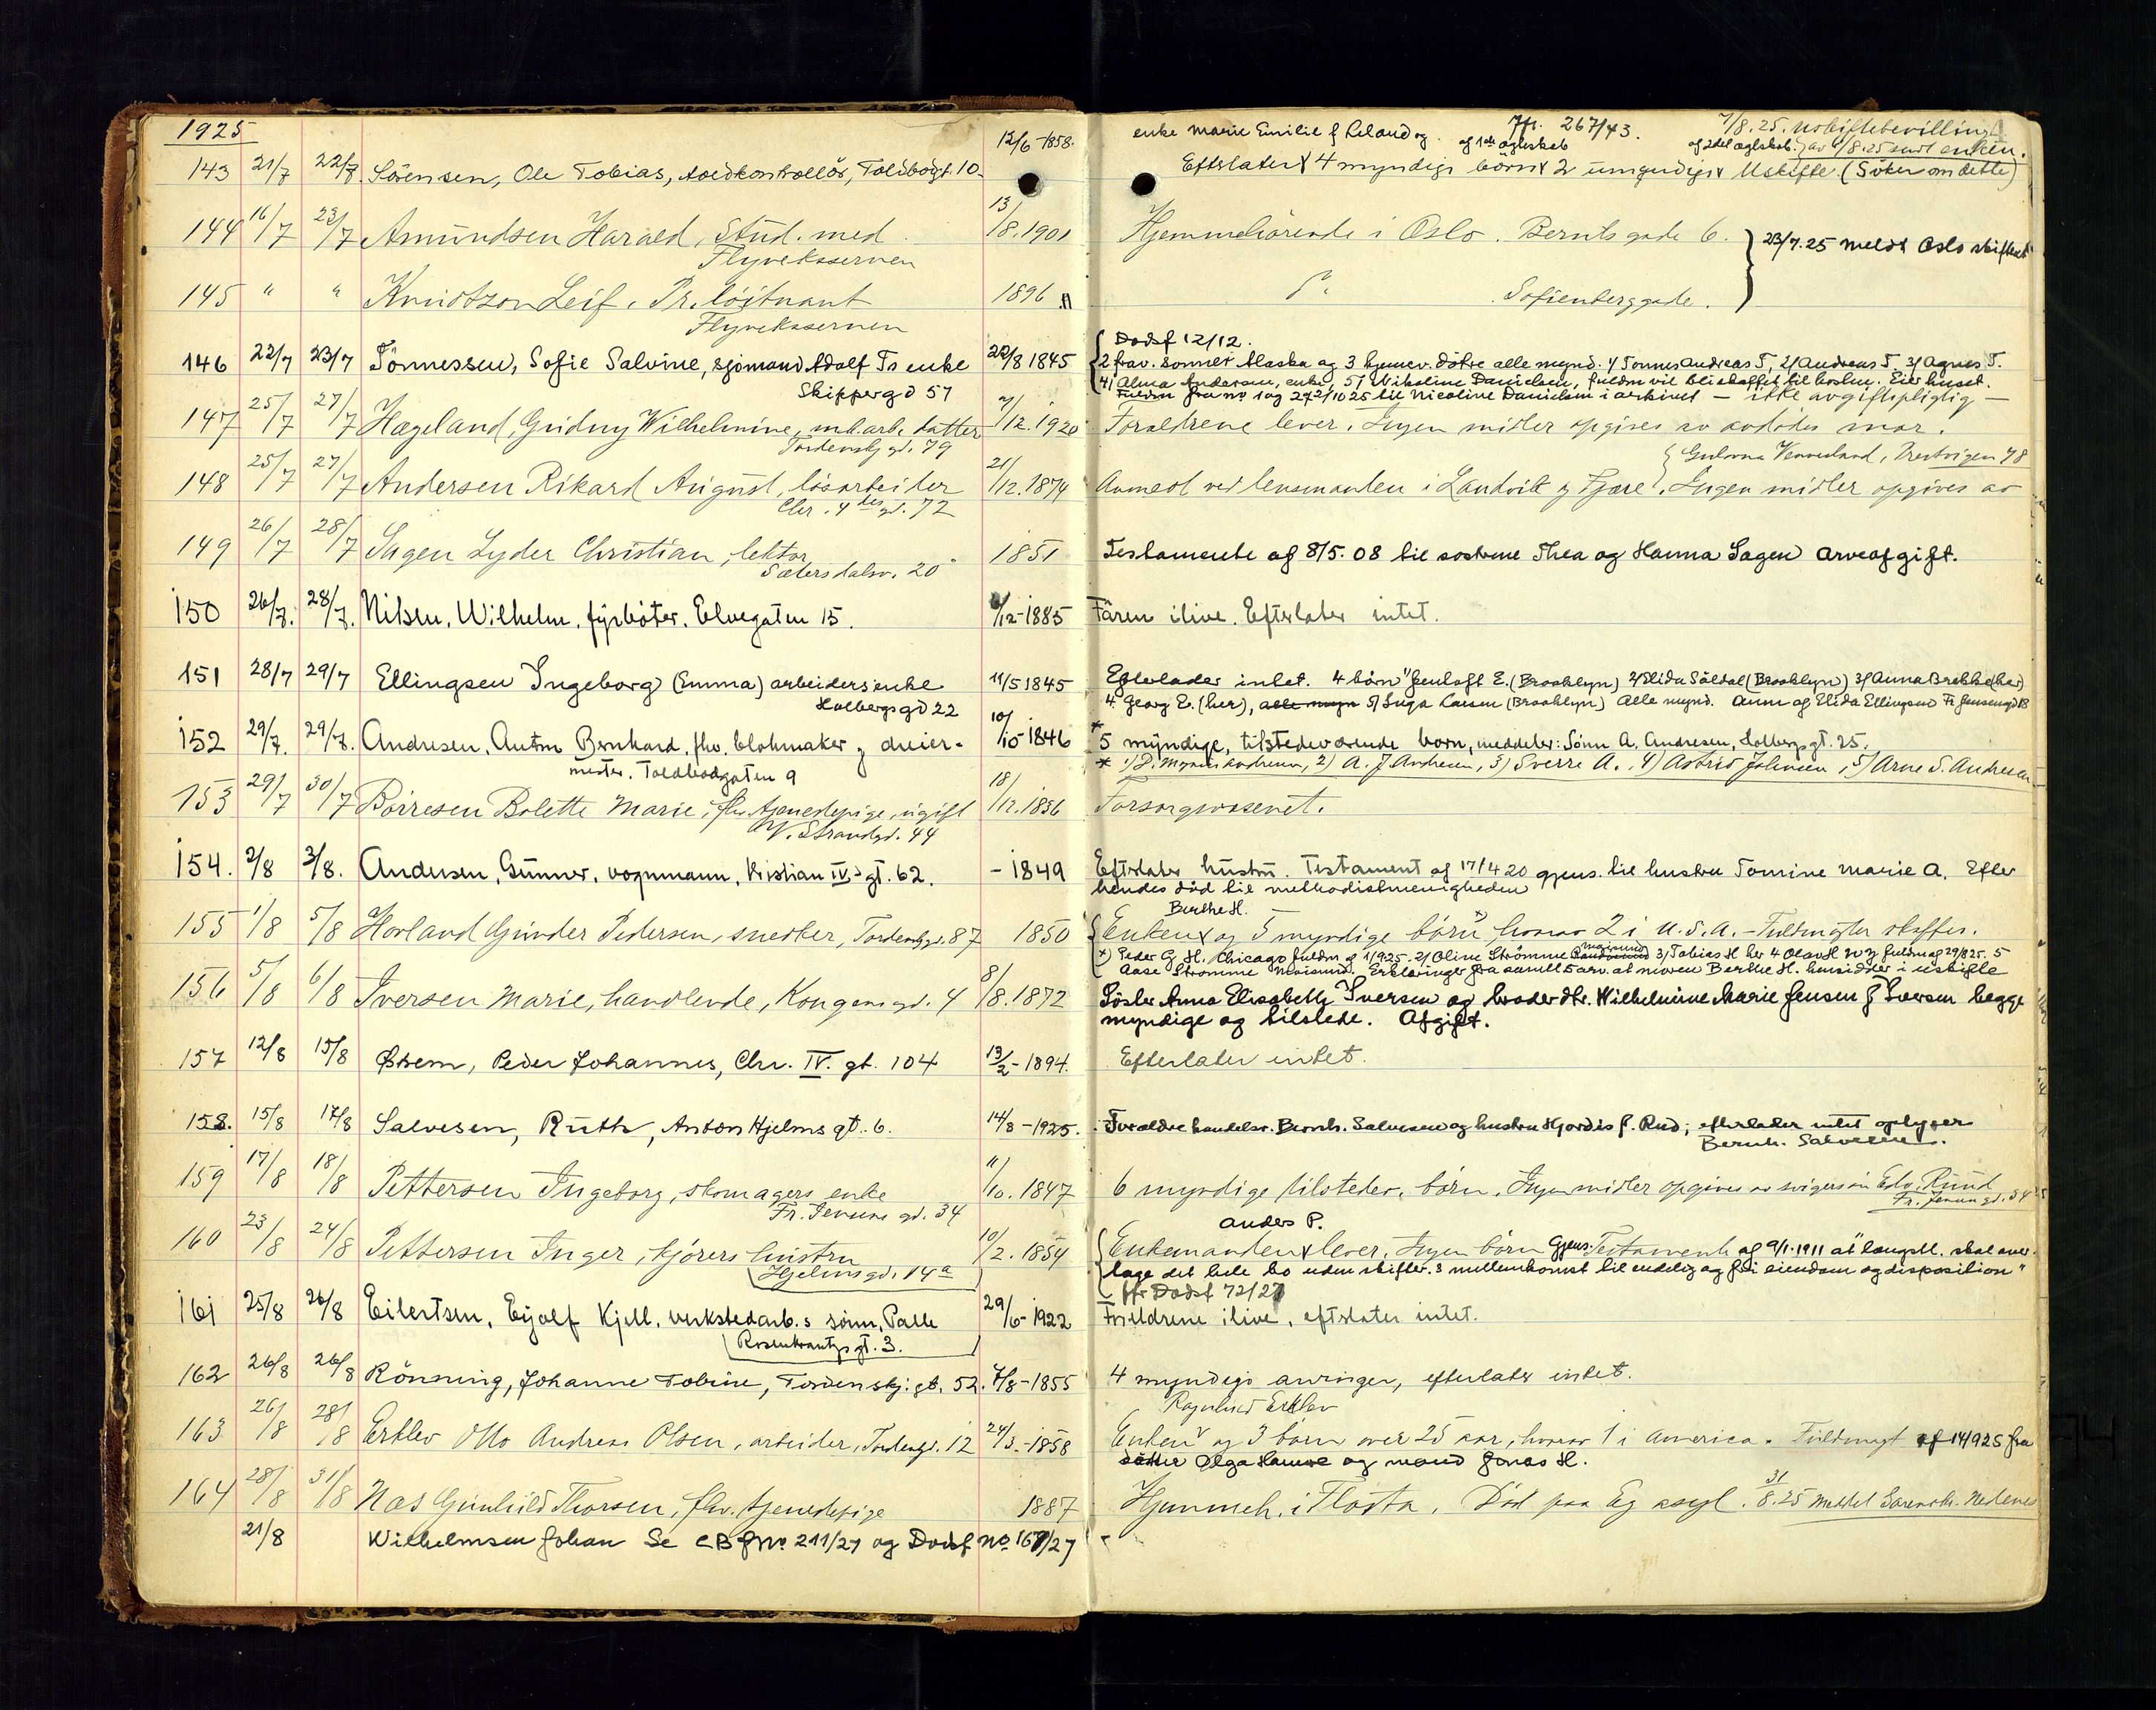 1925
143 21/7 22/7 Sörensen, Ole Tobias, toldkontrollör, Toldbodgt. 10. 12/6-1858.
enke Marie Emilie f Reland og af 1ste ægteskab Jfr. 267/43. af 2det ægtskab. 7/8.25. Uskiftebevilling av 6/8.25 sendt enken.
Efterlater 4 myndige börn 2 umyndige Uskifte (Söker om dette)
144 16/7 23/7 Amundsen Harald, Stud. med. 13/8.1901 Hjemmehörende i Oslo. Bernts gade 6. } 23/7.25 meldt Oslo skifteret
Flyveksserven
145 " " Knudtzon Leif, Pr. löitnant 1896 Do Sofienberggade.
Flyveksserven
Dodsf 12/12.
146 22/7 23/7 Tönnessen, Sofie Salvine, sjömand Adolf Ts enke 22/8 1845 2 frav. sonner Alaska og 3 hjemev. dötre alle mynd. 1/ Tonnes Andreas T, 2/ Andreas T, 3/ Agnes T.
Skippergd 57 4/ Alma Andersen, enke, 5/ Nikoline Danielsen, fuldm vil bli skaffet til boslm. Eier huset.
Fuldm fra no 1 og 2 2/10 25 til Nicoline Danielsen i arkivet — ikke avgiftspligtig —
147 25/7 27/7 Hægeland, Gudny Wilhelmine, mb.arb. datter 7/12.1920 Foreldrene lever. Ingen midler opgives av avdödes mor.
Tordenskj gd. 79
148 25/7 27/7 Andersen Rikard August, lösarbeider 21/12.1874 Anmeldt ved lensmanden i Landvik og Fjære. Ingen midler opgives av
Chr. 4des gd. 72
149 26/7 28/7 Sagen Lyder Christian, lektor 1851 Testamente af 8/5.08 til sostrene Thea og Hanna Sagen Arveafgift.
Sætersdalsv. 20
150 26/7. 28/7. Nilsen, Wilhelm, fyrböter, Elvegaten 15. 6/12-1885 Faren ilive. Efterlater intet.
151 28/7 29/7 Ellingsen Ingeborg (Emma) arbeidersenke 11/5 1845 Efterlader intet. 4 börn 1/ Jenloft E. (Brooklyn) 2/ Elida Söldal (Brooklyn) 3/ Anna Brekke (her)
Holbergsgd 22 4 Georg E. (her), alle myn 5/ Inga Larsen (Brooklyn) Alle mynd. Anm af Elida Ellingsen Fr Jensensgd 18
152 29/7. 29/7. Andresen, Anton Bernhard, fhv. blokmaker og dreier- 10/10-1846 5 myndige, tilstedeværende born, meddeler: Sönn A. Andresen, Holbergsgt. 25.
mester. Toldbodgaten 9 * 1) D. Andresen, 2) A. J. Andresen, 3) Sverre A., 4) Astrid Johnsen, 5) Arne S. Andresen
153 29/7 30/7 Börresen Bolette Marie, fhv. tjenestepige, ugift 18/12.1836 Forsorgsvæsenet.
V. Strandgd. 44
154. 2/8 3/8. Andersen, Gunner, vognmann, Kristian IV.s gt. 62. - 1849 Efterlater hustru. Testament af 17/4 20 gjens. til hustru Tomine Marie A. Efter
hendes död til methodistmenigheden
Berthe H.
155 1/8 5/8 Hovland Gunder Pedersen, snedker, Tordenskjgd. 87 1850 Enken og 5 myndige börn, hvorav 2 i U.S.A. - Fuldmagter skaffes.
x) Peder G H. Chicago fuldm af 1/925. 2/ Oline Strömme Mosisund 3/ Tobias H her 4 Olav H N.Y fuldm af 29/825. 5
Aase Strömme Mosisund. Erklæringer fra samtl 5 arv. at moren Berthe H. hensidder i uskifte
156 5/8 6/8 Iversen Marie, handlende, Kongensgd. 4 8/8.1872 Söster Anna Elisabeth Iversen og broder dtr. Wilhelmine Marie Jensen f Iversen begge
myndige og tilstede. Afgift.
157 12/8 15/8 Östrem, Peder Johannes, Chr. IV. gt. 104 13/2-1894. Efterlater intet.
158. 15/8 17/8 Salvesen, Ruth, Anton Hjelms gt. 6. 14/8-1925. Foraldre handelsr. Bernh. Salvesen og hustru Hjordis f. Rud; efterlater intet oplyser
Bernh. Salvesen.
159 17/8 18/8 Pettersen Ingeborg, skomagers enke 11/10.1847 6 myndige tilstedev. börn. Ingen midler opgives av svigersön Edv. Ruud
Fr. Jensens gd. 34 Fr. Jensens gd. 34
Anders P.
160 23/8 24/8 Pettersen Inger, kjörers hustru 10/2.1854 Enkemanden lever, Ingen börn Gjens. Testamente af 9/1.1911 at "længstl. skal over-
Hjelmsgd. 14a tage det hele bo uden skifte til endelig og fri eiendom og disposition"
Jfr Dodsf 72/27
161 25/8 26/8 Eilertsen, Eyolf Kjell, verkstedarb.s sönn, Palle 29/6-1922 Foreldrene ilive, efterlater intet.
Rosenkrantzs gt. 3.
162 26/8 26/8 Rönning, Johanne Tobine, Tordenskj. gt. 52. 7/8-1855 4 myndige arvinger, efterlater intet.
Ragnhild Erklev
163 26/8 28/8 Erklev Otto Andreas Olsen, arbeider, Tordenskjgd. 12 24/3-1858 Enken og 3 börn over 25 aar, hvorav 1 i America. Fuldmagt af 14/925 fra
datter Olga Hamre og mand Jonas H.
164 28/8 31/8 Næs Gunhild Thorsen, fhv. tjenestepige 1887 Hjemmeh. i Flosta. Död paa Eg asyl. 31/8.25 meddel Sorensk. Nedenes
21/8 Wilhelmsen Johan Se CBf no. 211/27 og Dodsf no. 167/27